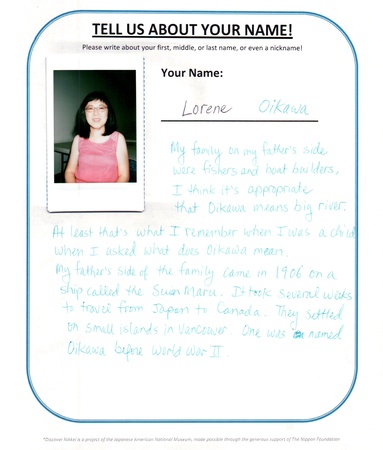 TELL US ABOUT YOUR NAME!
Please write about your first, middle, or last name, or even a nickname!
Your Name:
Lorene Oikawa
My family on my father's side
were fishers and boat builders,
I think it's appropriate
that Oikawa means big river.
At least that's what I remember when I was a child
when I asked what does Oikawa mean.
My father's side of the family came in 1906 on a
ship called the Suian Maru. It took several weeks
to travel from Japan to Canada. They settled
on small islands in Vancouver. One was named
Oikawa before World War II.
*Discover Nikkei is a project of the Japanese American National Museum, made possible through the generous support of The Nippon Foundation